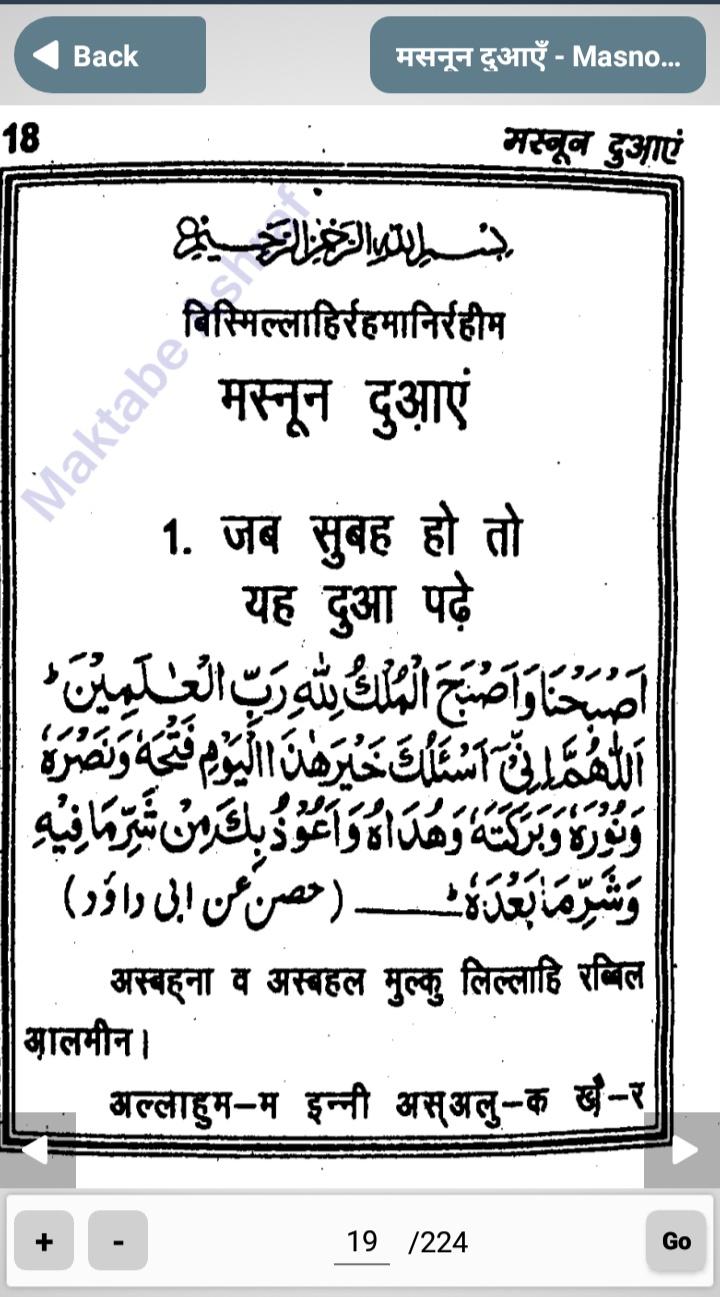 Back
मसनून दुआएँ - Masno...
18
मस्नून दुआएं
بِسْمِ اللهِ الرَّحْمٰنِ الرَّحِيْمِ
बिस्मिल्लाहिर्रहमानिर्रहीम
मस्नून दुआ़एं
1. जब सुबह हो तो
यह दुआ पढ़े
اَصْبَحْنَا وَاَصْبَحَ الْمُلْكُ لِلّٰهِ رَبِّ الْعٰلَمِيْنَ ؕ
اَللّٰهُمَّ اِنِّیْۤ اَسْئَلُكَ خَيْرَ هٰذَا الْيَوْمِ فَتْحَهٗ وَنَصْرَهٗ
وَنُوْرَهٗ وَبَرَكَتَهٗ وَهُدَاهُ وَاَعُوْذُ بِكَ مِنْ شَرِّ مَا فِيْهِ
وَشَرِّ مَا بَعْدَهٗ ؕ ـــــــ (حصن عن ابی داؤد)
अस्बह्ना व अस्बहल मुल्कु लिल्लाहि रब्बिल
आ़लमीन।
अल्लाहुम-म इन्नी अस्अलु-क ख़ै-र
Maktabe Ashraf
+
-
19 /224
Go